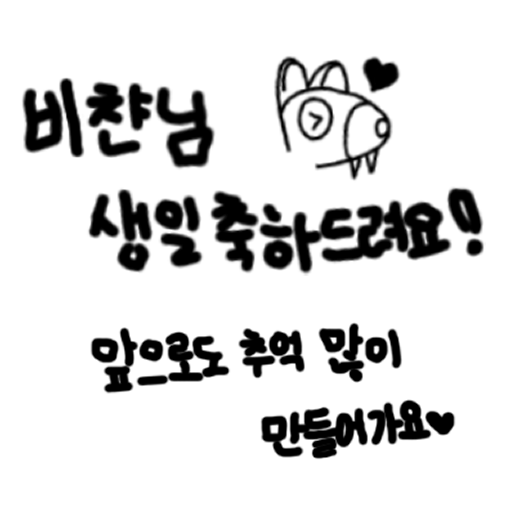 비챤님
생일 축하드려요!
앞으로도 추억 많이
만들어가요♥